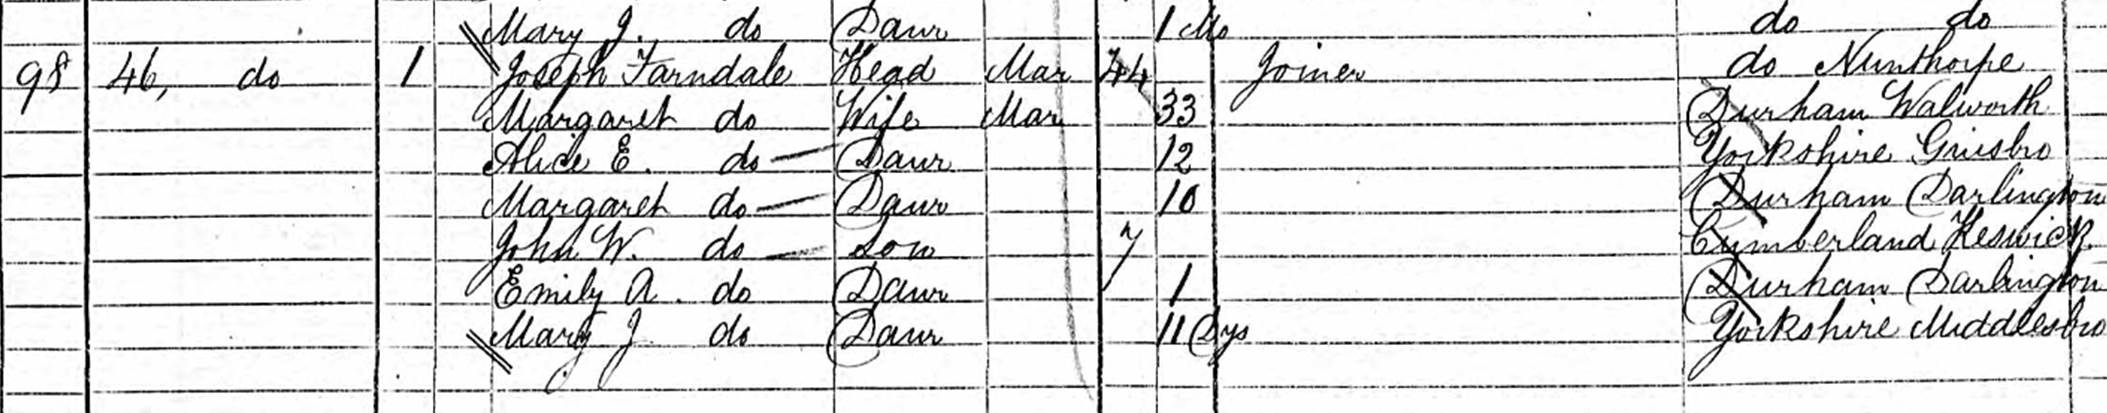 Mary J. do Daur 1 Mo do do
98 46, do 1 Joseph Farndale Head Mar 44 Joiner do Nunthorpe
Margaret do Wife Mar 33 Durham Walworth
Alice E. do Daur 12 Yorkshire Guisbro
Margaret do Daur 10 Durham Darlington
John W. do Son 7 Cumberland Keswick.
Emily A. do Daur 1 Durham Darlington
Mary J do Daur 11 Dys Yorkshire Middlesbro